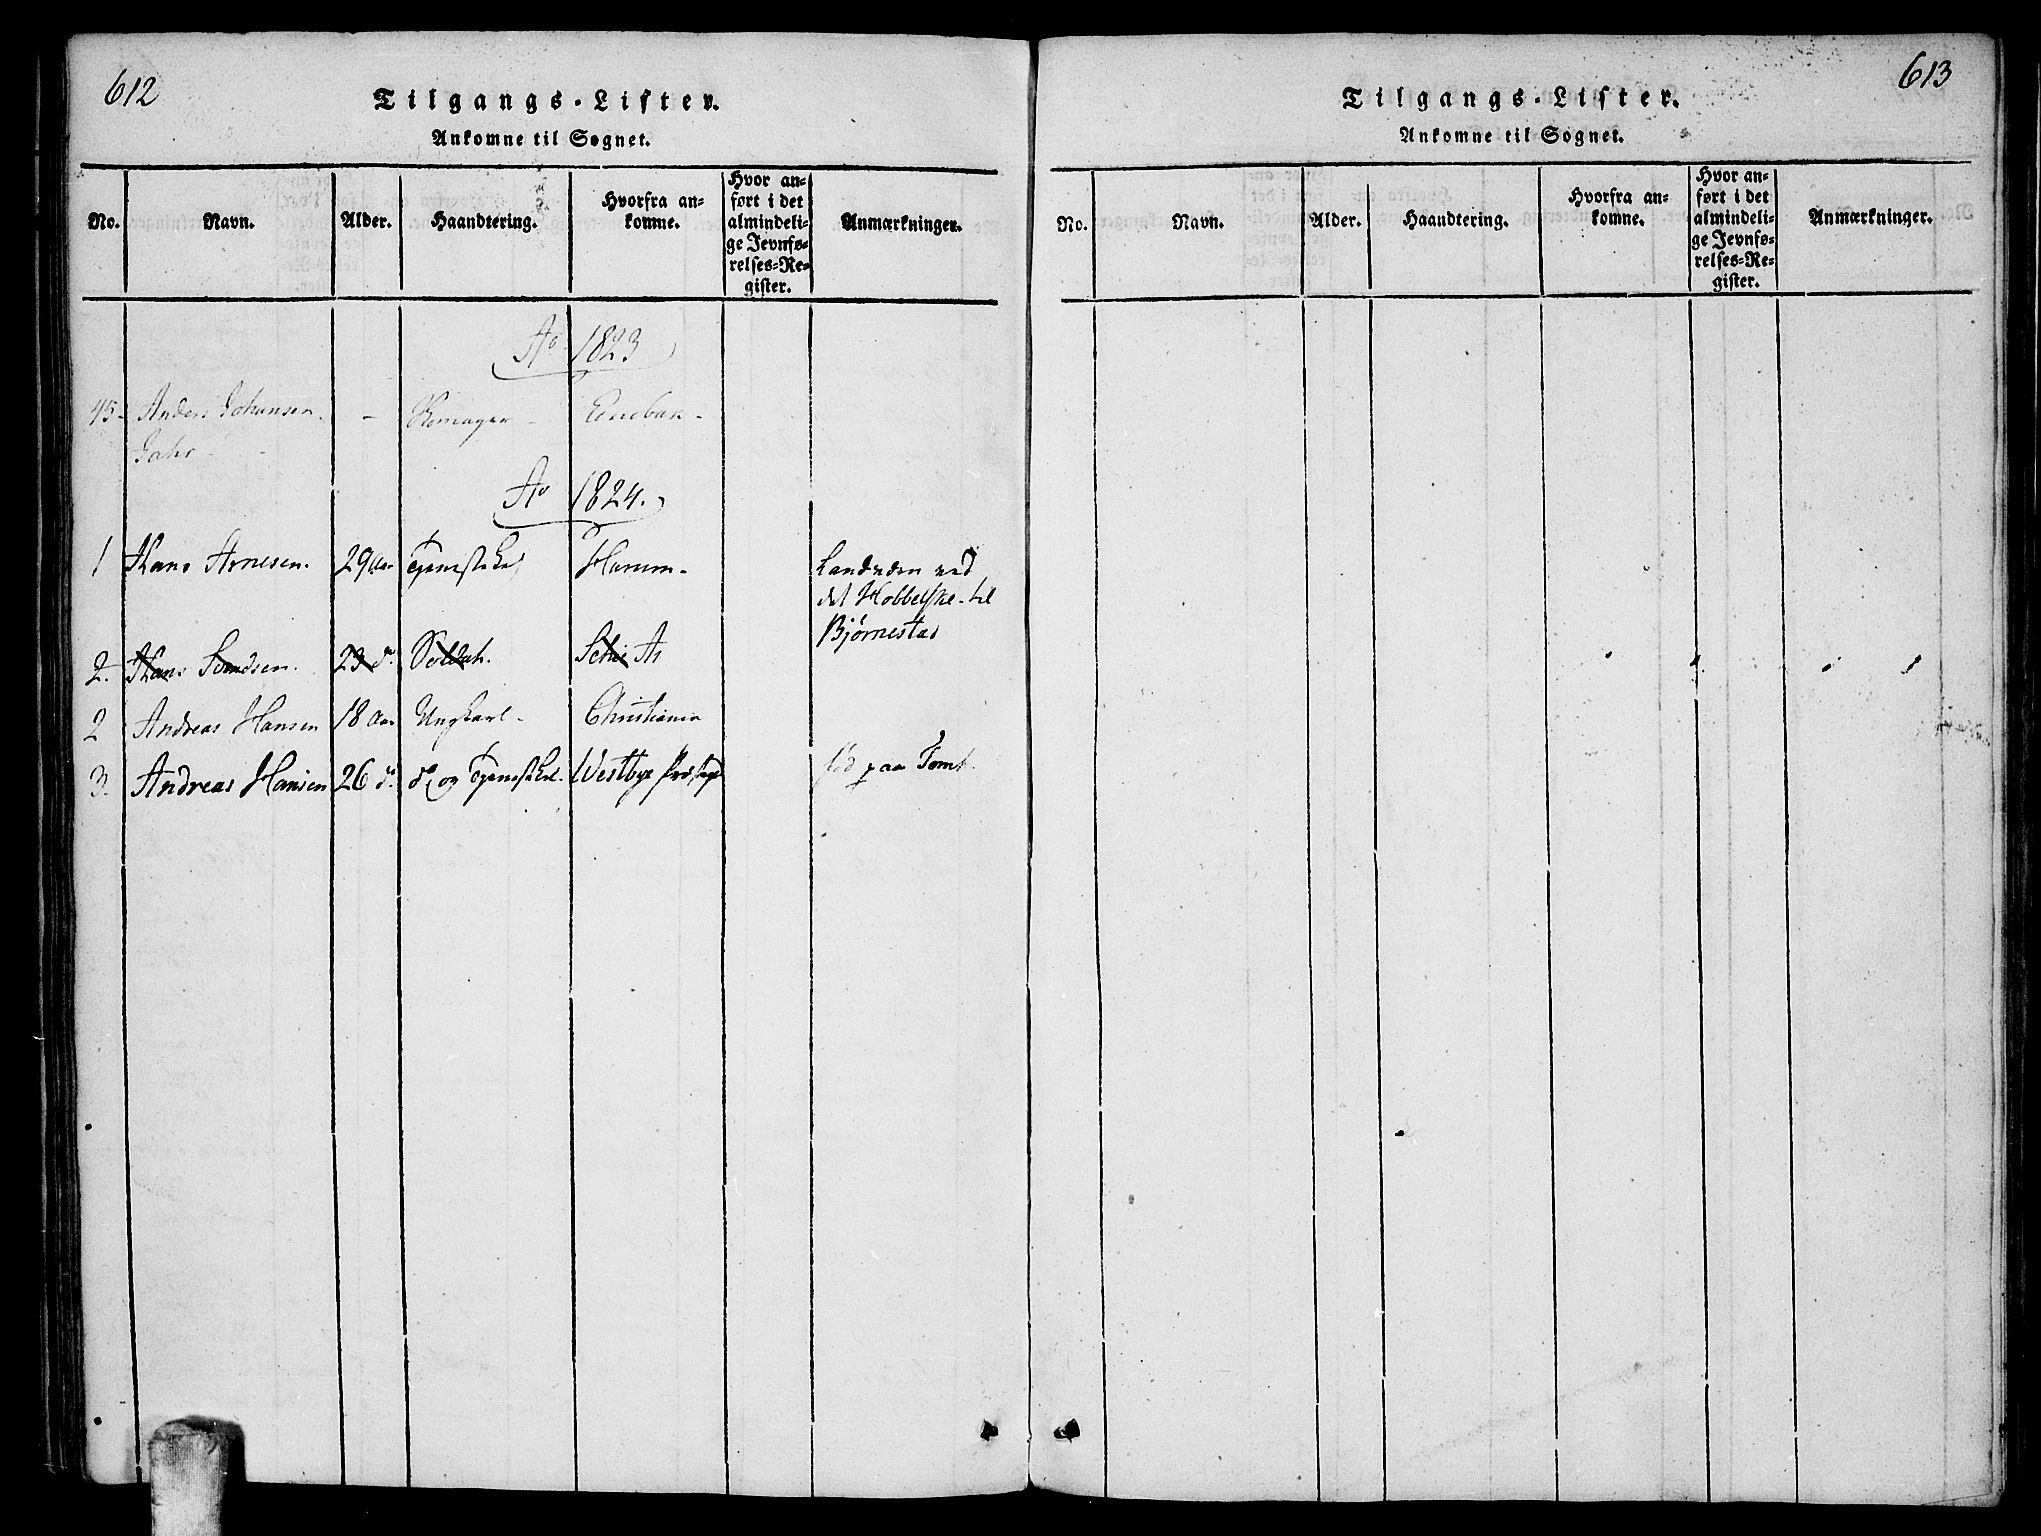 612
Tilgangs-Lister.
Ankomne til Sognet.
No. Navn. Alder. Haandtering. Hvorfra an-
komme. Hvor an-
ført i det
almindeli-
ge Jevnfø-
relses-Re-
gister. Anmærkninger.
Ao 1823
45- Anders Johansen - Skomager - Enebak-
Ao 1824.
1 Hans Arnesen. 29 Aar Tjenestekarl
det Hobbelske - til
Bjørnestad
2. Hans 23 do. Soldat. As
2 Andreas Hansen 18 Aar Ungkarl- Christiania
3. Andreas Hansen 26 do do og Tjenestekarl. Westbye Præstegd paa Tomt
613
Tilgangs-Lister.
Ankomne til Sognet.
No. Navn. Alder. Haandtering. Hvorfra an-
komne. Hvor an-
ført i det
almindeli-
ge Jevnfø-
relses-Re-
gister. Anmærkninger.